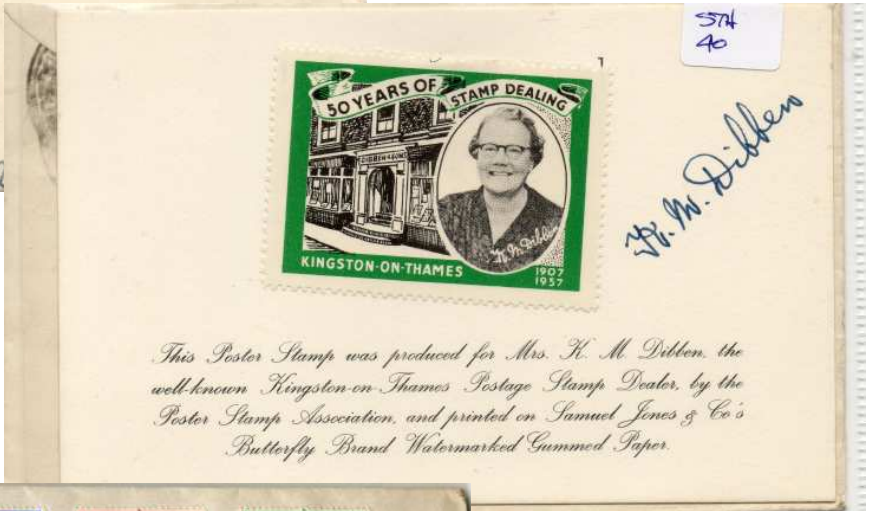 STH
40
50 YEARS OF STAMP DEALING
DIBBEN & SONS
K. M. Dibben
KINGSTON-ON-THAMES
1907
1957
K. M. Dibben
This Poster Stamp was produced for Mrs. K. M. Dibben, the
well-known Kingston-on-Thames Postage Stamp Dealer, by the
Poster Stamp Association, and printed on Samuel Jones & Co's
Butterfly Brand Watermarked Gummed Paper.